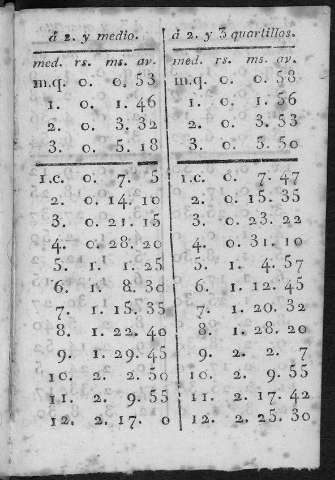 á 2. y medio.
med. rs. ms. av.
m.q. 0. 0. 53
1. 0. 1. 46
2. 0. 3. 32
3. 0. 5. 18
1.c. 0. 7. 5
2. 0. 14. 10
3. 0. 21. 15
4. 0. 28. 20
5. 1. 1. 25
6. 1. 8. 30
7. 1. 15. 35
8. 1. 22. 40
9. 1. 29. 45
10. 2. 2. 50
11. 2. 9. 55
12. 2. 17. 0
á 2. y 3 quartillos.
med. rs. ms. av.
m.q. 0. 0. 58
1. 0. 1. 56
2. 0. 3. 53
3. 0. 3. 50
1.c. 0. 7. 47
2. 0. 15. 35
3. 0. 23. 22
4. 0. 31. 10
5. 1. 4. 57
6. 1. 12. 45
7. 1. 20. 32
8. 1. 28. 20
9. 2. 2. 7
10. 2. 9. 55
11. 2. 17. 42
12. 2. 25. 30